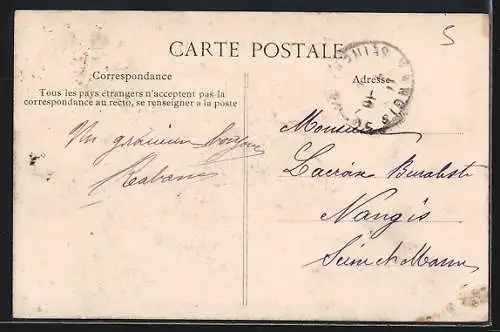 5
CARTE POSTALE
Correspondance
Adresse
Tous les pays étrangers n'acceptent pas la
correspondance au recto, se renseigner à la poste
NANGIS
Un gracieux bonjour
Monsieur
Lacroix Buraliste
Nangis
Seine et Marne